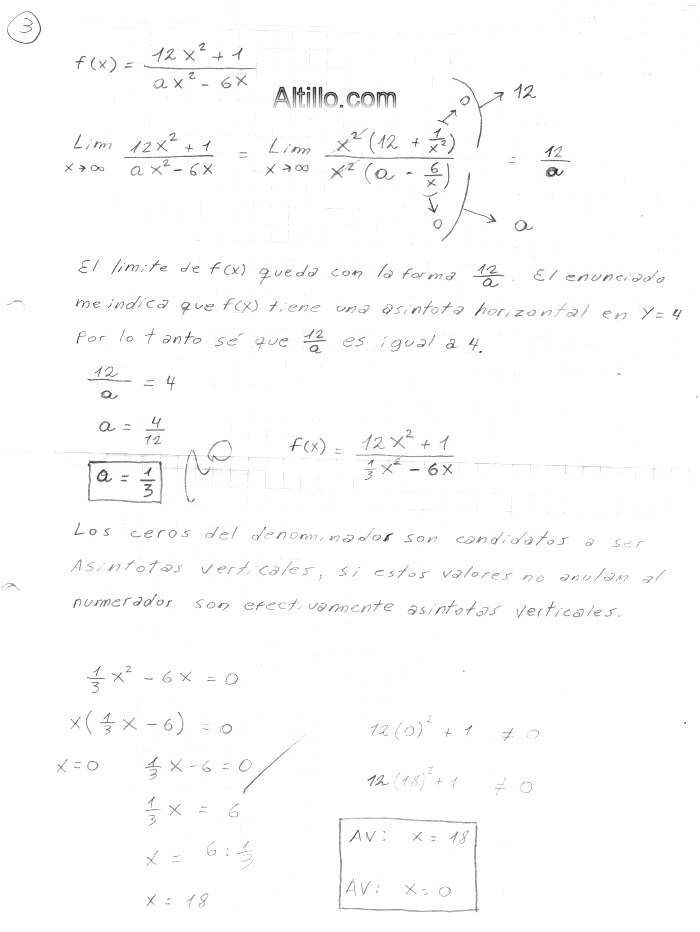 3
f(x) = 12x² + 1 / ax² - 6x
Altillo.com
Lim x→∞ 12x² + 1 / ax² - 6x = Lim x→∞ x²(12 + 1/x²) / x²(a - 6/x) = 12/a
0 → 12
0 → a
El limite de f(x) queda con la forma 12/a. El enunciado
me indica que f(x) tiene una asintota horizontal en Y=4
Por lo tanto sé que 12/a es igual a 4.
12/a = 4
a = 4/12
a = 1/3
f(x) = 12x² + 1 / 1/3 x² - 6x
Los ceros del denominador son candidatos a ser
Asintotas verticales, si estos valores no anulan al
numerador son efectivamente asintotas verticales.
1/3 x² - 6x = 0
x(1/3 x - 6) = 0
x = 0 1/3 x - 6 = 0
1/3 x = 6
x = 6 : 1/3
x = 18
12(0)² + 1 ≠ 0
12(18)² + 1 ≠ 0
AV: x = 18
AV: x = 0